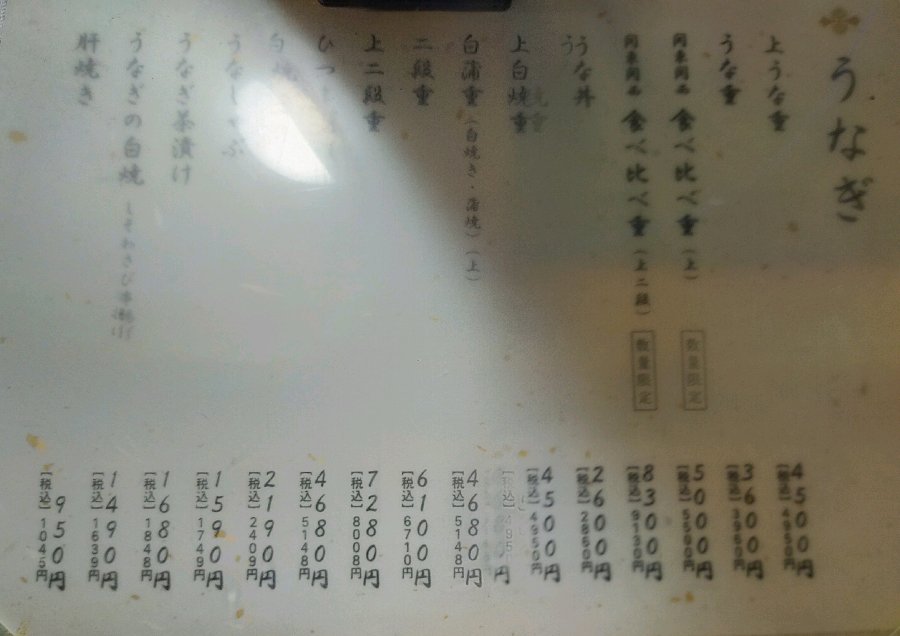 うなぎ
上うな重 4500円
【税込】4950円
うな重 3600円
【税込】3960円
関東関西 食べ比べ重(上) 数量限定 5000円
【税込】5500円
関東関西 食べ比べ重(上二段) 数量限定 8300円
【税込】9130円
うな丼 2600円
【税込】2860円
上白焼重 4500円
【税込】4950円
白蒲重(白焼き・蒲焼)(上) 4680円
【税込】5148円
二段重 6100円
【税込】6710円
上二段重 7280円
【税込】8008円
4680円
【税込】5148円
2190円
【税込】2409円
1590円
【税込】1749円
うなぎ茶漬け 1680円
【税込】1848円
うなぎの白焼 1490円
【税込】1639円
肝焼き 950円
【税込】1045円